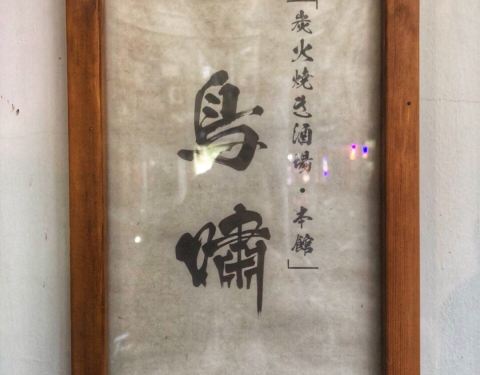 「炭火焼き酒場・本館」
鳥嘯